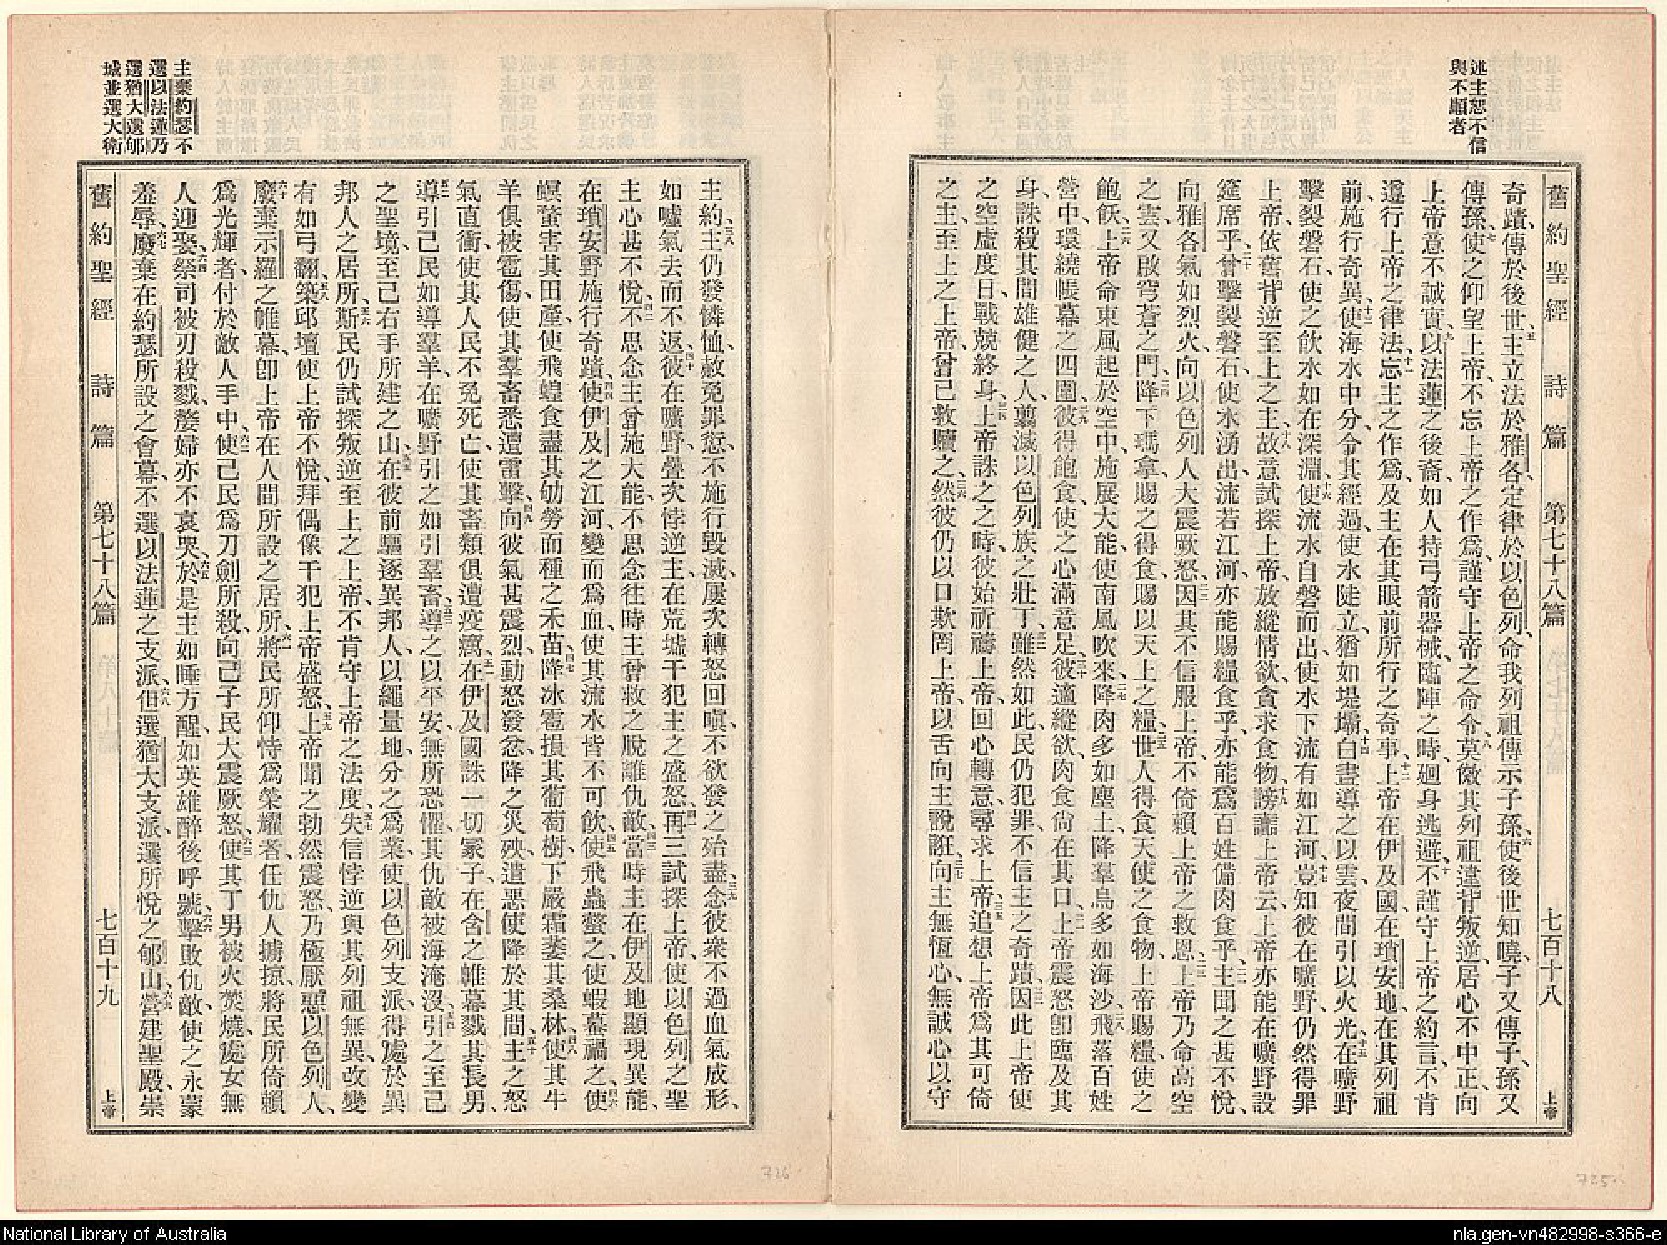 舊約聖經 詩篇 第七十八篇 七百十八 上帝
述主恕不信
與不順者
奇蹟、傳於後世、五主立法於雅各、定律於以色列、命我列祖傳示子孫、六使後世知曉、子又傳子、孫又
傳孫、七使之仰望上帝、不忘上帝之作爲、謹守上帝之命令、八莫傚其列祖違背叛逆、居心不中正、向
上帝意不誠實、九以法蓮之後裔、如人持弓箭器械、臨陣之時、廻身逃避、十不謹守上帝之約言、不肯
遵行上帝之律法、十一忘主之作爲、及主在其眼前所行之奇事、十二上帝在伊及國在瑣安地、在其列祖
前、施行奇異、十三使海水中分、令其經過、使水陡立、猶如堤壩、十四白晝導之以雲、夜間引以火光、十五在曠野
擊裂磐石、使之飲水、如在深淵、十六使流水自磐而出、使水下流、有如江河、十七豈知彼在曠野、仍然得罪
上帝、依舊背逆至上之主、十八故意試探上帝、放縱情欲、貪求食物、十九謗讟上帝云、上帝亦能在曠野設
筵席乎、二十曾擊裂磐石、使水湧出、流若江河、亦能賜糧食乎、亦能爲百姓備肉食乎、二一主聞之甚不悅、
向雅各氣如烈火、向以色列人大震厥怒、二二因其不信服上帝、不倚賴上帝之救恩、二三上帝乃命高空
之雲、又啟穹蒼之門、二四降下瑪拿、賜之得食、賜以天上之糧、二五世人得食天使之食物、上帝賜糧、使之
飽飫、二六上帝命東風起於空中、施展大能、使南風吹來、二七降肉多如塵土、降羣鳥多如海沙、二八飛落百姓
營中、環繞帳幕之四圍、二九彼得飽食、使之心滿意足、三十彼適縱欲、肉食尙在其口、三一上帝震怒、卽臨及其
身、誅殺其間雄健之人、翦滅以色列族之壯丁、三二雖然如此、民仍犯罪、不信主之奇蹟、三三因此上帝使
之空虛度日、戰兢終身、三四上帝誅之之時、彼始祈禱上帝、回心轉意、尋求上帝、三五追想上帝爲其可倚
之主、至上之上帝、曾已救贖之、三六然彼仍以口欺罔上帝、以舌向主說誑、三七向主無恆心、無誠心以守
主約、三八主仍發憐恤、赦免罪愆、不施行毀滅、屢次轉怒回嗔、不欲發之殆盡、三九念彼衆不過血氣成形、
如噓氣去而不返、四十彼在曠野、疊次悖逆主、在荒墟干犯主之盛怒、四一再三試探上帝、使以色列之聖
主心甚不悅、四二不思念主曾施大能、不思念往時主曾救之脫離仇敵、四三當時主在伊及地顯現異能、
在瑣安野施行奇蹟、四四使伊及之江河、變而爲血、使其流水皆不可飲、四五使飛蟲螫之、使蝦蟇禍之、四六使
螟蝥害其田產、使飛蝗食盡其劬勞而種之禾苗、四七降冰雹損其葡萄樹、下嚴霜萎其桑林、四八使其牛
羊俱被雹傷、使其羣畜悉遭雷擊、四九向彼氣甚震烈、動怒發忿、降之災殃、遣惡使降於其間、五十主之怒
氣直衝、使其人民不免死亡、使其畜類俱遭疫癘、五一在伊及國誅一切冢子、在含之帷幕戮其長男、
導引己民如導羣羊、在曠野引之如引羣畜、五三導之以平安、無所恐懼、其仇敵被海淹沒、五四引之至己
之聖境、至己右手所建之山、五五在彼前驅逐異邦人、以繩量地、分之爲業、使以色列支派、得處於異
邦人之居所、五六斯民仍試探叛逆至上之上帝、不肯守上帝之法度、五七失信悖逆、與其列祖無異、改變
有如弓翻、五八築邱壇使上帝不悅、拜偶像干犯上帝盛怒、五九上帝聞之、勃然震怒、乃極厭惡以色列人、
六十廢棄示羅之帷幕、卽上帝在人間所設之居所、六一將民所仰恃爲榮耀者、任仇人擄掠、將民所倚賴
爲光輝者、付於敵人手中、六二使己民爲刀劍所殺、向己子民大震厥怒、六三使其丁男被火焚燒、處女無
人迎娶、六四祭司被刃殺戮、嫠婦亦不哀哭、六五於是主如睡方醒、如英雄醉後呼號、六六擊敗仇敵、使之永蒙
羞辱、六七廢棄在約瑟所設之會幕、不選以法蓮之支派、六八但選猶大支派、選所悅之郇山、六九營建聖殿、崇
主棄約瑟不
選以法蓮乃
選猶大選郇
城並選大衛
舊約聖經 詩篇 第七十八篇 七百十九 上帝
726
725
National Library of Australia
nla.gen-vn482998-s366-e